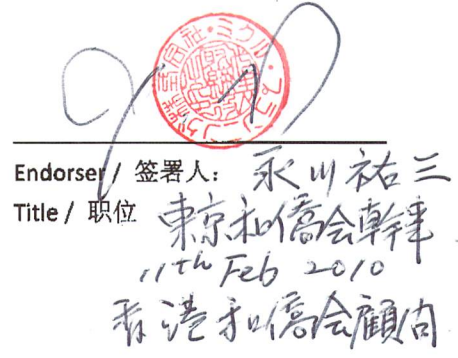 Endorser / 签署人: 永川祐三
Title / 职位 東京和僑会幹事
11th Feb 2010
香港和僑会顧问